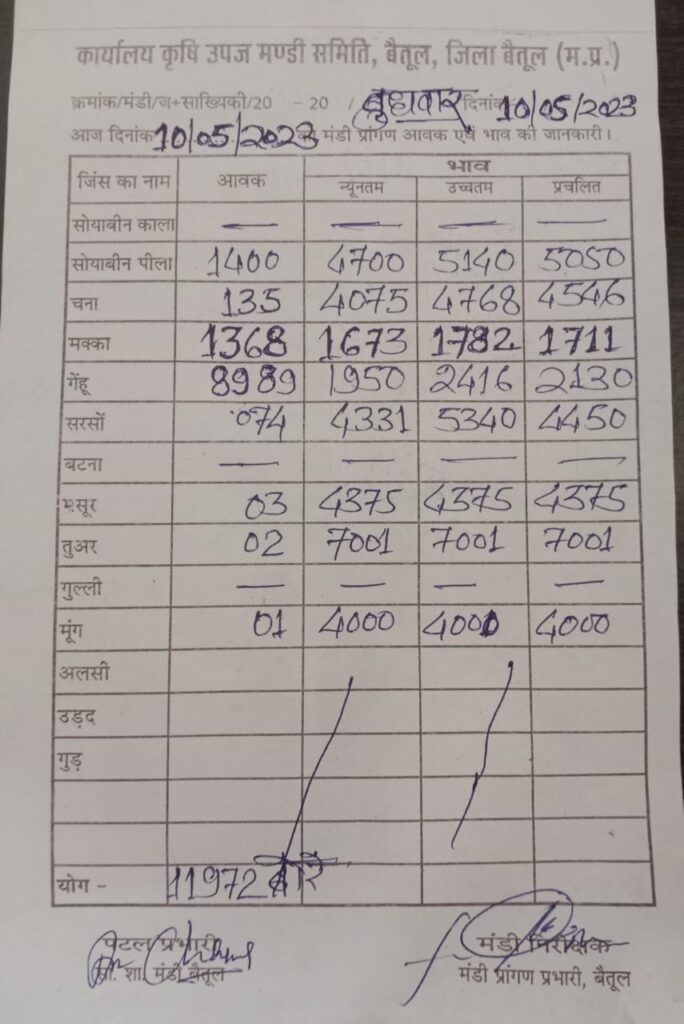 कार्यालय कृषि उपज मण्डी समिति, बैतूल, जिला बैतूल (म.प्र.)
क्रमांक/मंडी/ज+साख्यिकी/20 - 20 / बुधवार दिनांक 10/05/2023
आज दिनांक 10/05/2023 को मंडी प्रांगण आवक एवं भाव की जानकारी।
जिंस का नाम आवक भाव
न्यूनतम उच्चतम प्रचलित
सोयाबीन काला — — — —
सोयाबीन पीला 1400 4700 5140 5050
चना 135 4075 4768 4546
मक्का 1368 1673 1782 1711
गेंहू 8989 1950 2416 2130
सरसों 074 4331 5340 4450
बटना — — — —
मसूर 03 4375 4375 4375
तुअर 02 7001 7001 7001
गुल्ली — — — —
मूंग 01 4000 4000 4000
अलसी
उड़द
गुड़
योग - 11972 बोरे
पटल प्रभारी मंडी निरीक्षक
शा. मंडी बैतूल मंडी प्रांगण प्रभारी, बैतूल